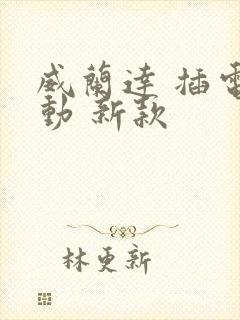 威蘭達 插電
動 新款
林更新